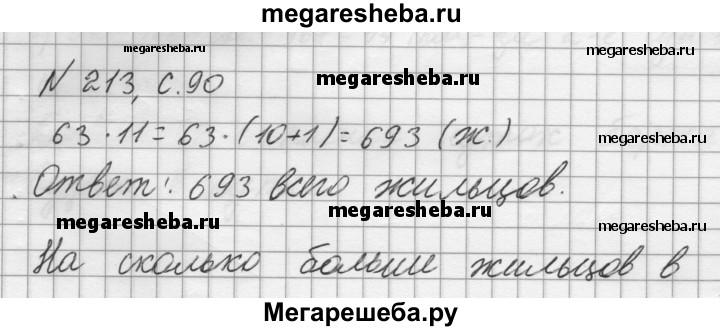 megaresheba.ru
megaresheba.ru
megaresheba.ru
N 213, с. 90
megaresheba.ru
63 · 11 = 63 · (10+1) = 693 (ж.)
megaresheba.ru
megaresheba.ru
Ответ: 693 всего жильцов.
megaresheba.ru
megaresheba.ru
megaresheba.ru
На сколько больше жильцов в
Мегарешеба.ру